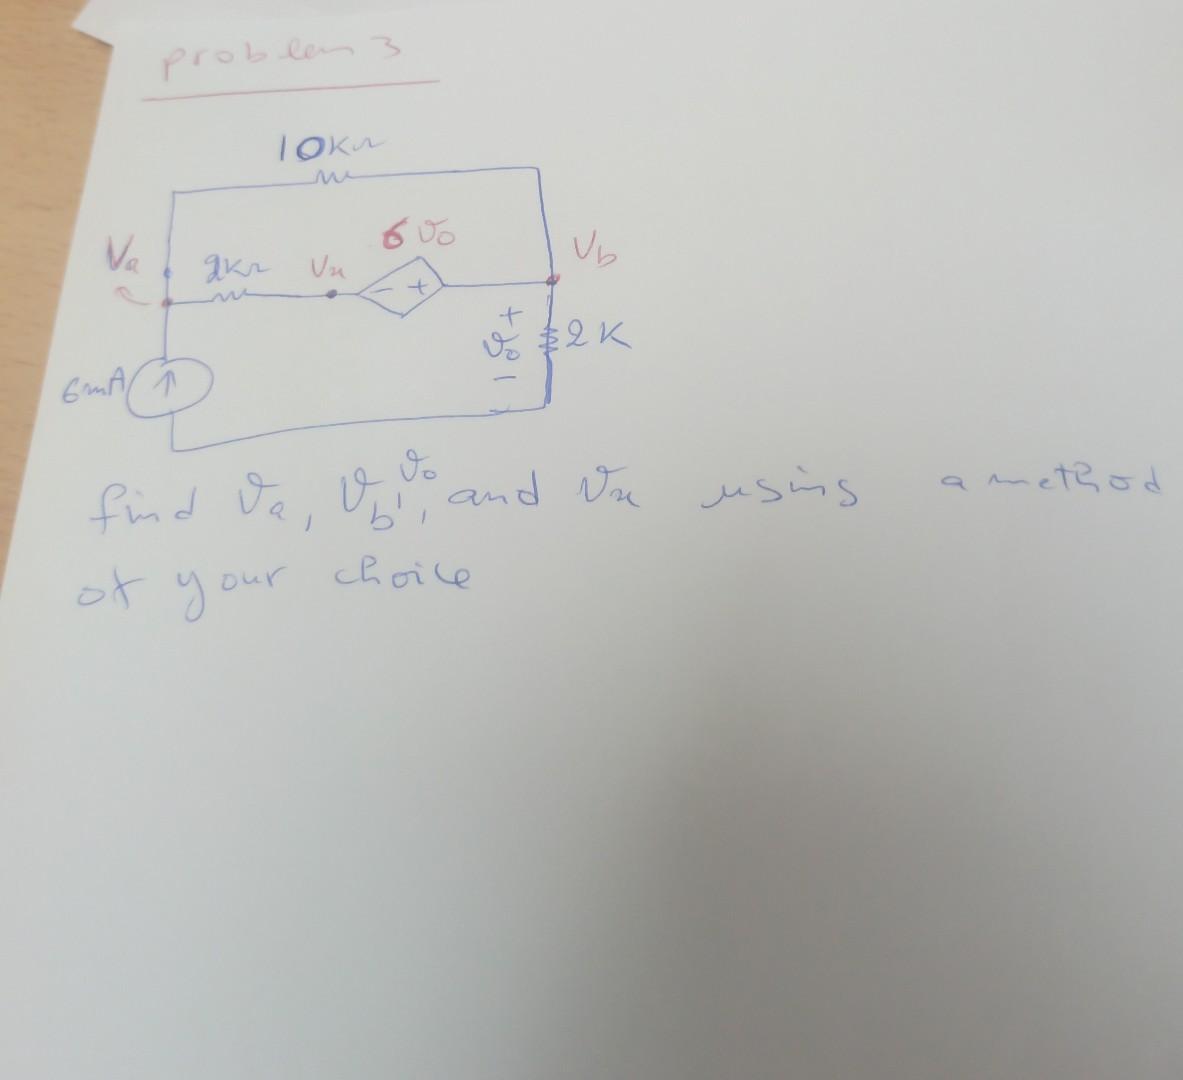 problem 3
10KΩ
6 v₀
Va
2KΩ
Vx
Vb
- +
+
v₀
2K
-
6mA
find Va, Vb, v₀, and Vx using a method
of your choice